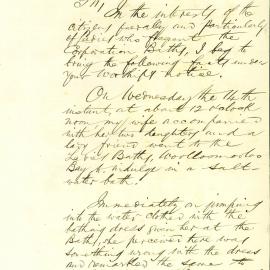 Sir,
In the interests of the
citizens generally, and particularly
of ladies who frequent the
Corporation Baths, I beg to
bring the following facts under
your Worship's notice.
On Wednesday the 14th
instant, at about 12 o'clock
noon my wife accompanied
with her two daughters and a
lady friend went to the
Ladies Baths, Woolloomooloo
Bay to indulge in a salt-
water bath.
Immediately on jumping
into the water clothed with the
bathing dress given her at the
Baths, she perceived there was
something wrong with the dress
and remarked the same to